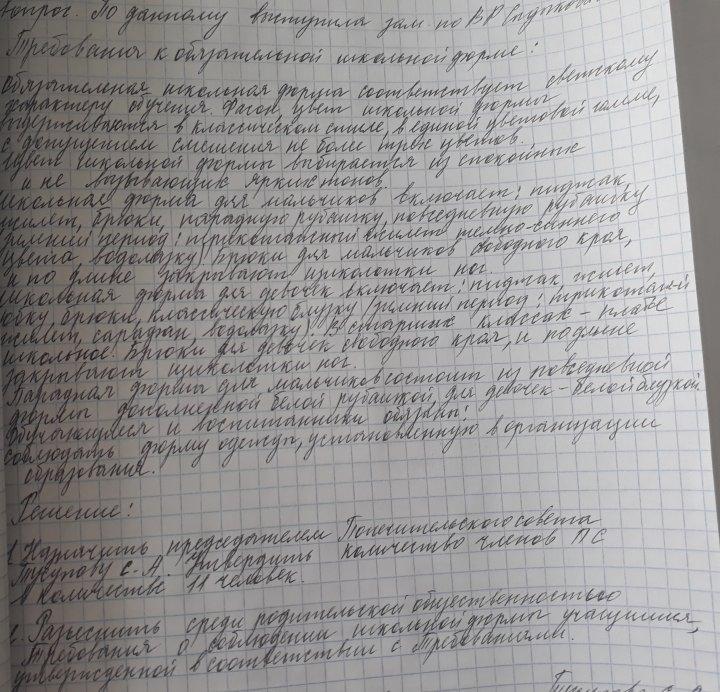 вопрос. По данному выступила зам. по ВР
Требования к обязательной школьной форме:
Обязательная школьная форма соответствует светскому
характеру обучения. Фасон, цвет школьной формы
выдерживаются в классическом стиле, в единой цветовой гамме,
с допущением смешения не более трех цветов.
Цвет школьной формы выбирается из спокойных
и не вызывающих ярких тонов.
Школьная форма для мальчиков включает: пиджак,
жилет, брюки, парадную рубашку, повседневную рубашку
(зимний период: трикотажный жилет темно-синего
цвета, водолазку) Брюки для мальчиков свободного края,
и по длине закрывают щиколотки ног.
Школьная форма для девочек включает: пиджак жилет,
юбку, брюки, классическую блузку (зимний период: трикотажный
жилет, сарафан, водолазку). В старших классах - платье
школьное. Брюки для девочек свободного края, и по длине
закрывают щиколотки ног.
Парадная форма для мальчиков состоит из повседневной
формы дополненной белой рубашкой, для девочек - белой блузкой.
Обучающиеся и воспитанники обязаны:
соблюдать форму одежды, установленную в организации
образования.
Решение:
1. Назначить председателем Попечительского совета
Тусупову С. А. Утвердить количество членов ПС
в количестве 11 человек.
2. Разъяснить среди родительской общественностью
Требования о соблюдении школьной формы учащимися,
утвержденной в соответствии с Требованиями.